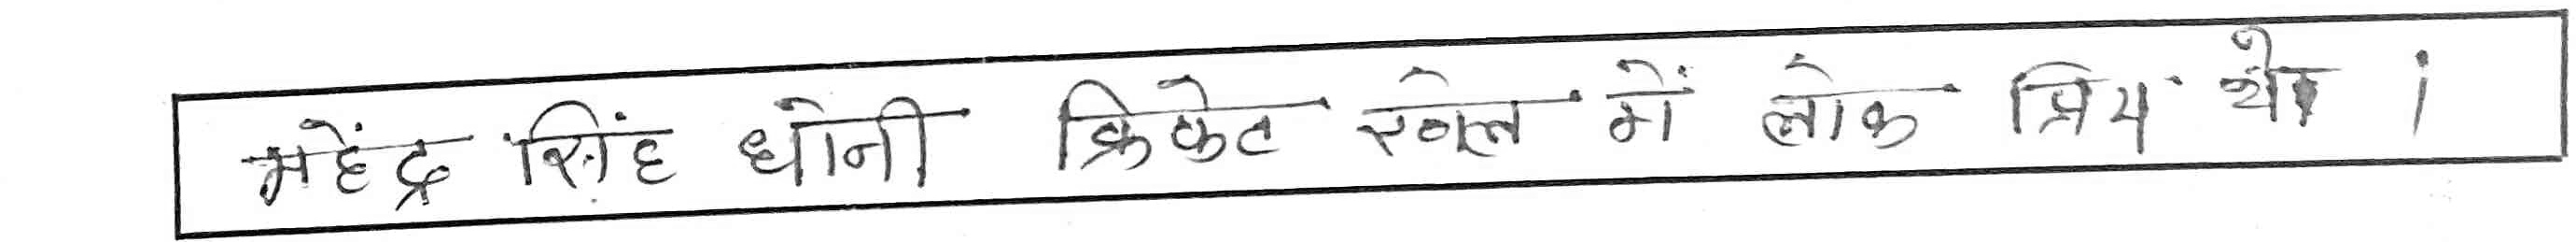 महेंद्र सिंह धोनी क्रिकेट खेल में लोक प्रिय थे ।